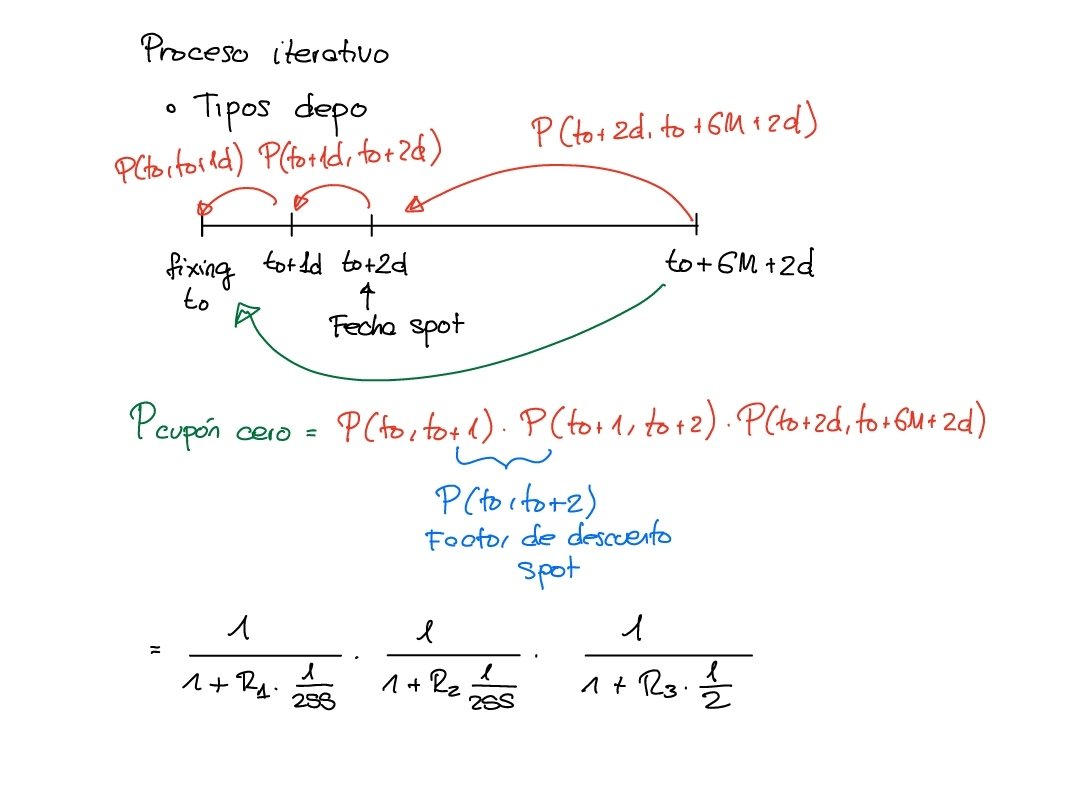 Proceso iterativo
∘ Tipos depo
P(to+2d, to+6M+2d)
P(to, to+1d) P(to+1d, to+2d)
fixing to+1d to+2d to+6M+2d
to ↑
Fecha spot
P cupón cero = P(to, to+1) · P(to+1, to+2) · P(to+2d, to+6M+2d)
P(to, to+2)
Factor de descuento
spot
= 1 / (1 + R1 · 1/255) · 1 / (1 + R2 1/255) · 1 / (1 + R3 · 1/2)